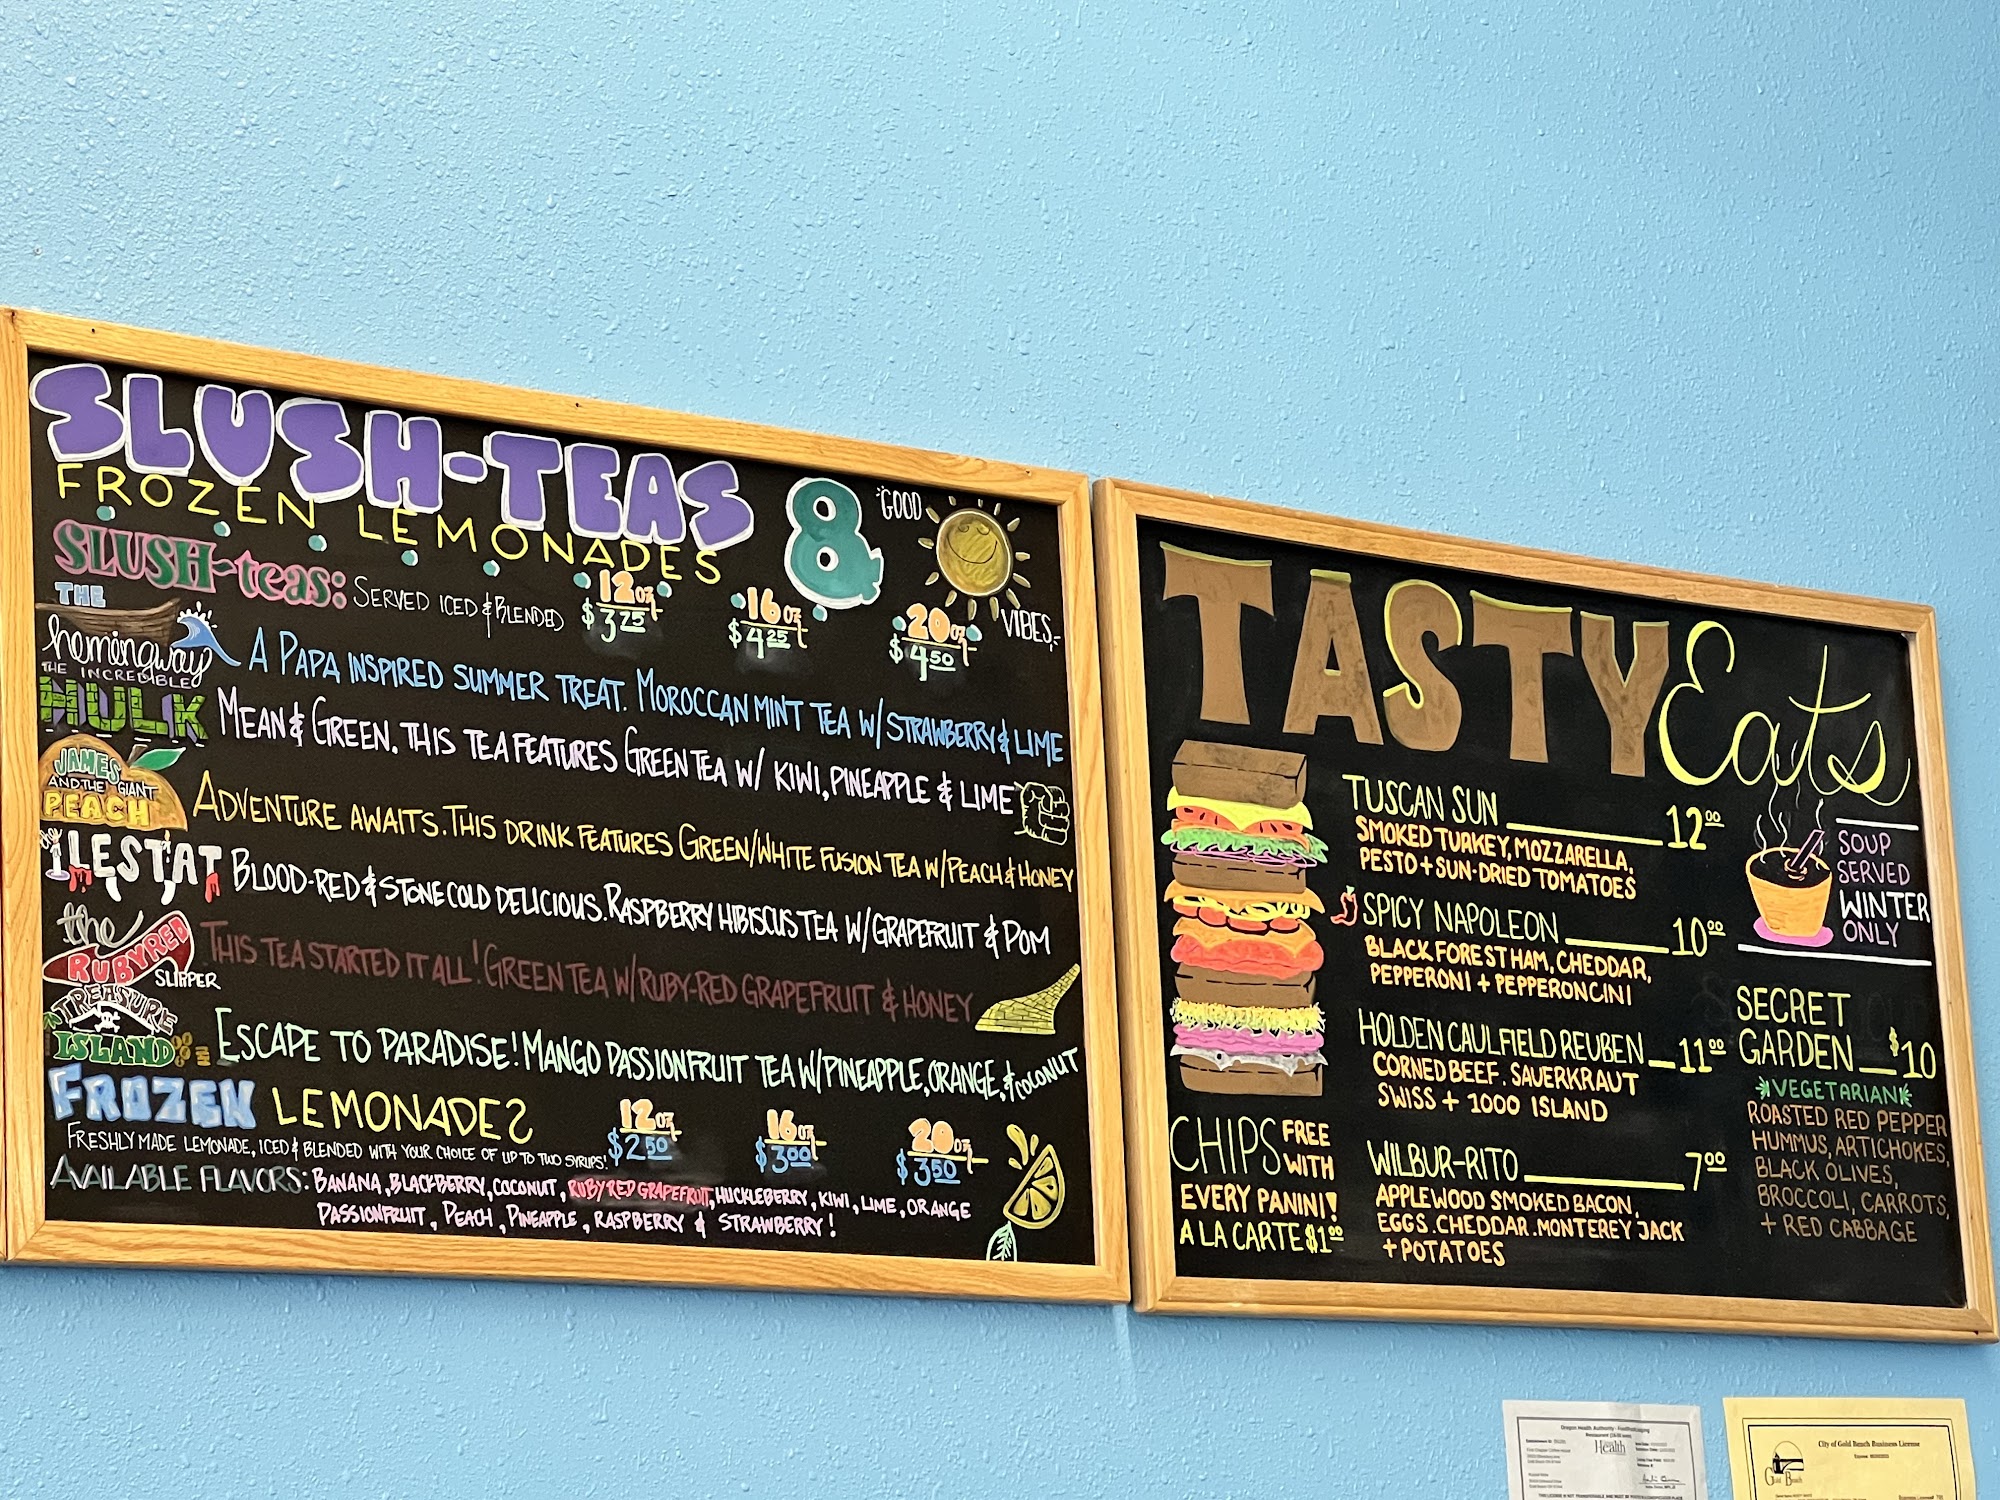 SLUSH-TEAS &
FROZEN LEMONADES
GOOD
VIBES
SLUSH-teas: SERVED ICED & BLENDED 12oz $3.25 16oz $4.25 20oz $4.50
THE hemingway A PAPA INSPIRED SUMMER TREAT. MOROCCAN MINT TEA W/ STRAWBERRY & LIME
THE INCREDIBLE HULK MEAN & GREEN. THIS TEA FEATURES GREEN TEA W/ KIWI, PINEAPPLE & LIME
JAMES AND THE GIANT PEACH ADVENTURE AWAITS. THIS DRINK FEATURES GREEN/WHITE FUSION TEA W/ PEACH & HONEY
the LESTAT BLOOD-RED & STONE COLD DELICIOUS. RASPBERRY HIBISCUS TEA W/ GRAPEFRUIT & POM
the RUBYRED SLIPPER THIS TEA STARTED IT ALL! GREEN TEA W/ RUBY-RED GRAPEFRUIT & HONEY
TREASURE ISLAND ESCAPE TO PARADISE! MANGO PASSIONFRUIT TEA W/ PINEAPPLE, ORANGE, & COCONUT
FROZEN LEMONADES 12oz $2.50 16oz $3.00 20oz $3.50
FRESHLY MADE LEMONADE, ICED & BLENDED WITH YOUR CHOICE OF UP TO TWO SYRUPS!
AVAILABLE FLAVORS: BANANA, BLACKBERRY, COCONUT, RUBY RED GRAPEFRUIT, HUCKLEBERRY, KIWI, LIME, ORANGE
PASSIONFRUIT, PEACH, PINEAPPLE, RASPBERRY & STRAWBERRY!
TASTY Eats
TUSCAN SUN 12.00
SMOKED TURKEY, MOZZARELLA,
PESTO + SUN-DRIED TOMATOES
SPICY NAPOLEON 10.00
BLACK FOREST HAM, CHEDDAR,
PEPPERONI + PEPPERONCINI
HOLDEN CAULFIELD REUBEN 11.00
CORNED BEEF. SAUERKRAUT
SWISS + 1000 ISLAND
WILBUR-RITO 7.00
APPLEWOOD SMOKED BACON,
EGGS. CHEDDAR. MONTEREY JACK
+ POTATOES
CHIPS FREE WITH
EVERY PANINI!
A LA CARTE $1.00
SOUP
SERVED
WINTER
ONLY
SECRET
GARDEN $10
VEGETARIAN
ROASTED RED PEPPER
HUMMUS, ARTICHOKES,
BLACK OLIVES,
BROCCOLI, CARROTS,
+ RED CABBAGE
Health
City of Gold Beach Business License
Gold Beach